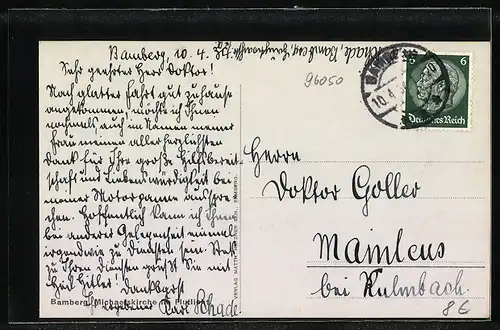 Bamberg, 10. 4.
Schade, Bamberg,
Sehr geehrter Herr Doktor!
Nach glatter Fahrt gut zuhause
angekommen, möchte ich Ihnen
nochmals auch im Namen meiner
Frau meinen allerherzlichsten
Dank für Ihre große Hilfsbereit-
schaft und Liebenswürdigkeit bei
meiner Motorpanne ausspre-
chen. Hoffentlich kann ich Ihnen
bei anderer Gelegenheit einmal
irgendwie zu Diensten sein. Stets
zu Ihren Diensten grüßt Sie mit
Heil Hitler! Dankbarst
Ihr ergebener Karl Schade.
Bamberg, Michaelskirche im Flutlicht
96050
BAMBERG
10.4.
6 6
Deutsches Reich
Herrn
Doktor Goller
Mainleus
bei Kulmbach.
8€